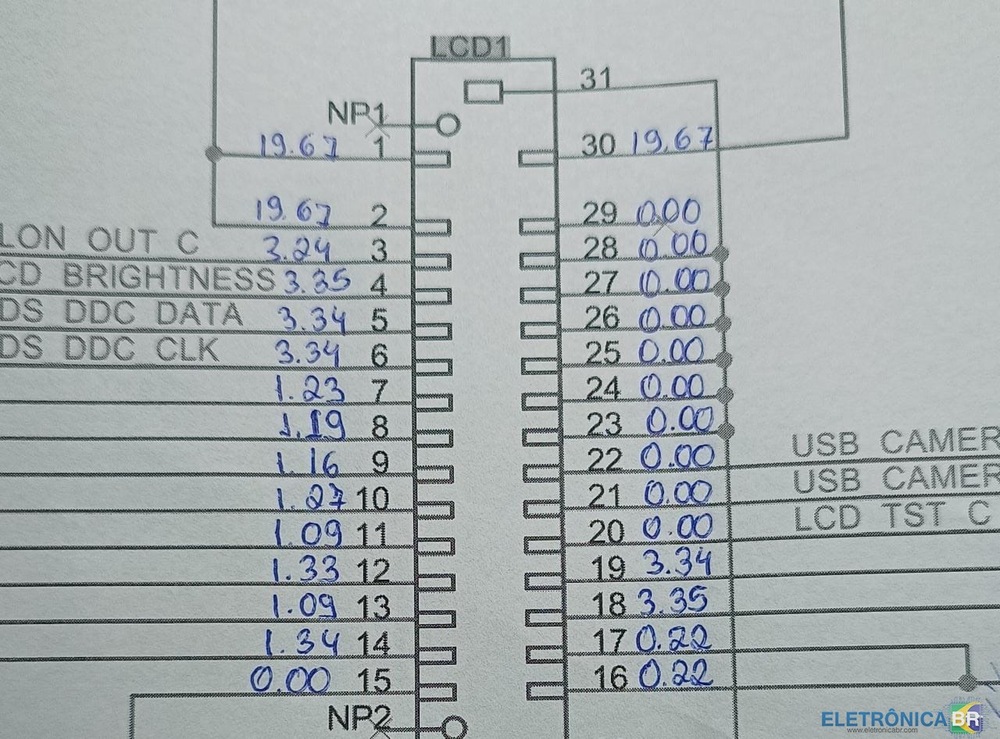 LCD1
31
NP1
19.67 1
30 19.67
19.67 2
29 0.00
LON OUT C 3.24 3
28 0.00
CD BRIGHTNESS 3.35 4
27 0.00
DS DDC DATA 3.34 5
26 0.00
DS DDC CLK 3.34 6
25 0.00
1.23 7
24 0.00
1.19 8
23 0.00
1.16 9
22 0.00 USB CAMER
1.27 10
21 0.00 USB CAMER
1.09 11
20 0.00 LCD TST C
1.33 12
19 3.34
1.09 13
18 3.35
1.34 14
17 0.22
0.00 15
16 0.22
NP2
ELETRÔNICA BR
www.eletronicabr.com